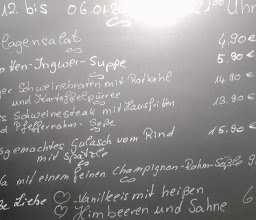 12. bis 06.01.20 Uhr
lagensalat 4.90€
ten-Ingwer-Suppe 5.90€
ger Schweinebraten mit Rotkohl 14.90€
und Kartoffelpüree
s Schweinesteak mit Hausfritten 13.90€
d Pfefferrahm-Soße
sgemachtes Gulasch vom Rind 15.90€
mit Spätzle
la mit einem feinen Champignon-Rahm-Soße 9.
ße Liebe ♡ Vanilleeis mit heißen 6
♡ Himbeeren und Sahne